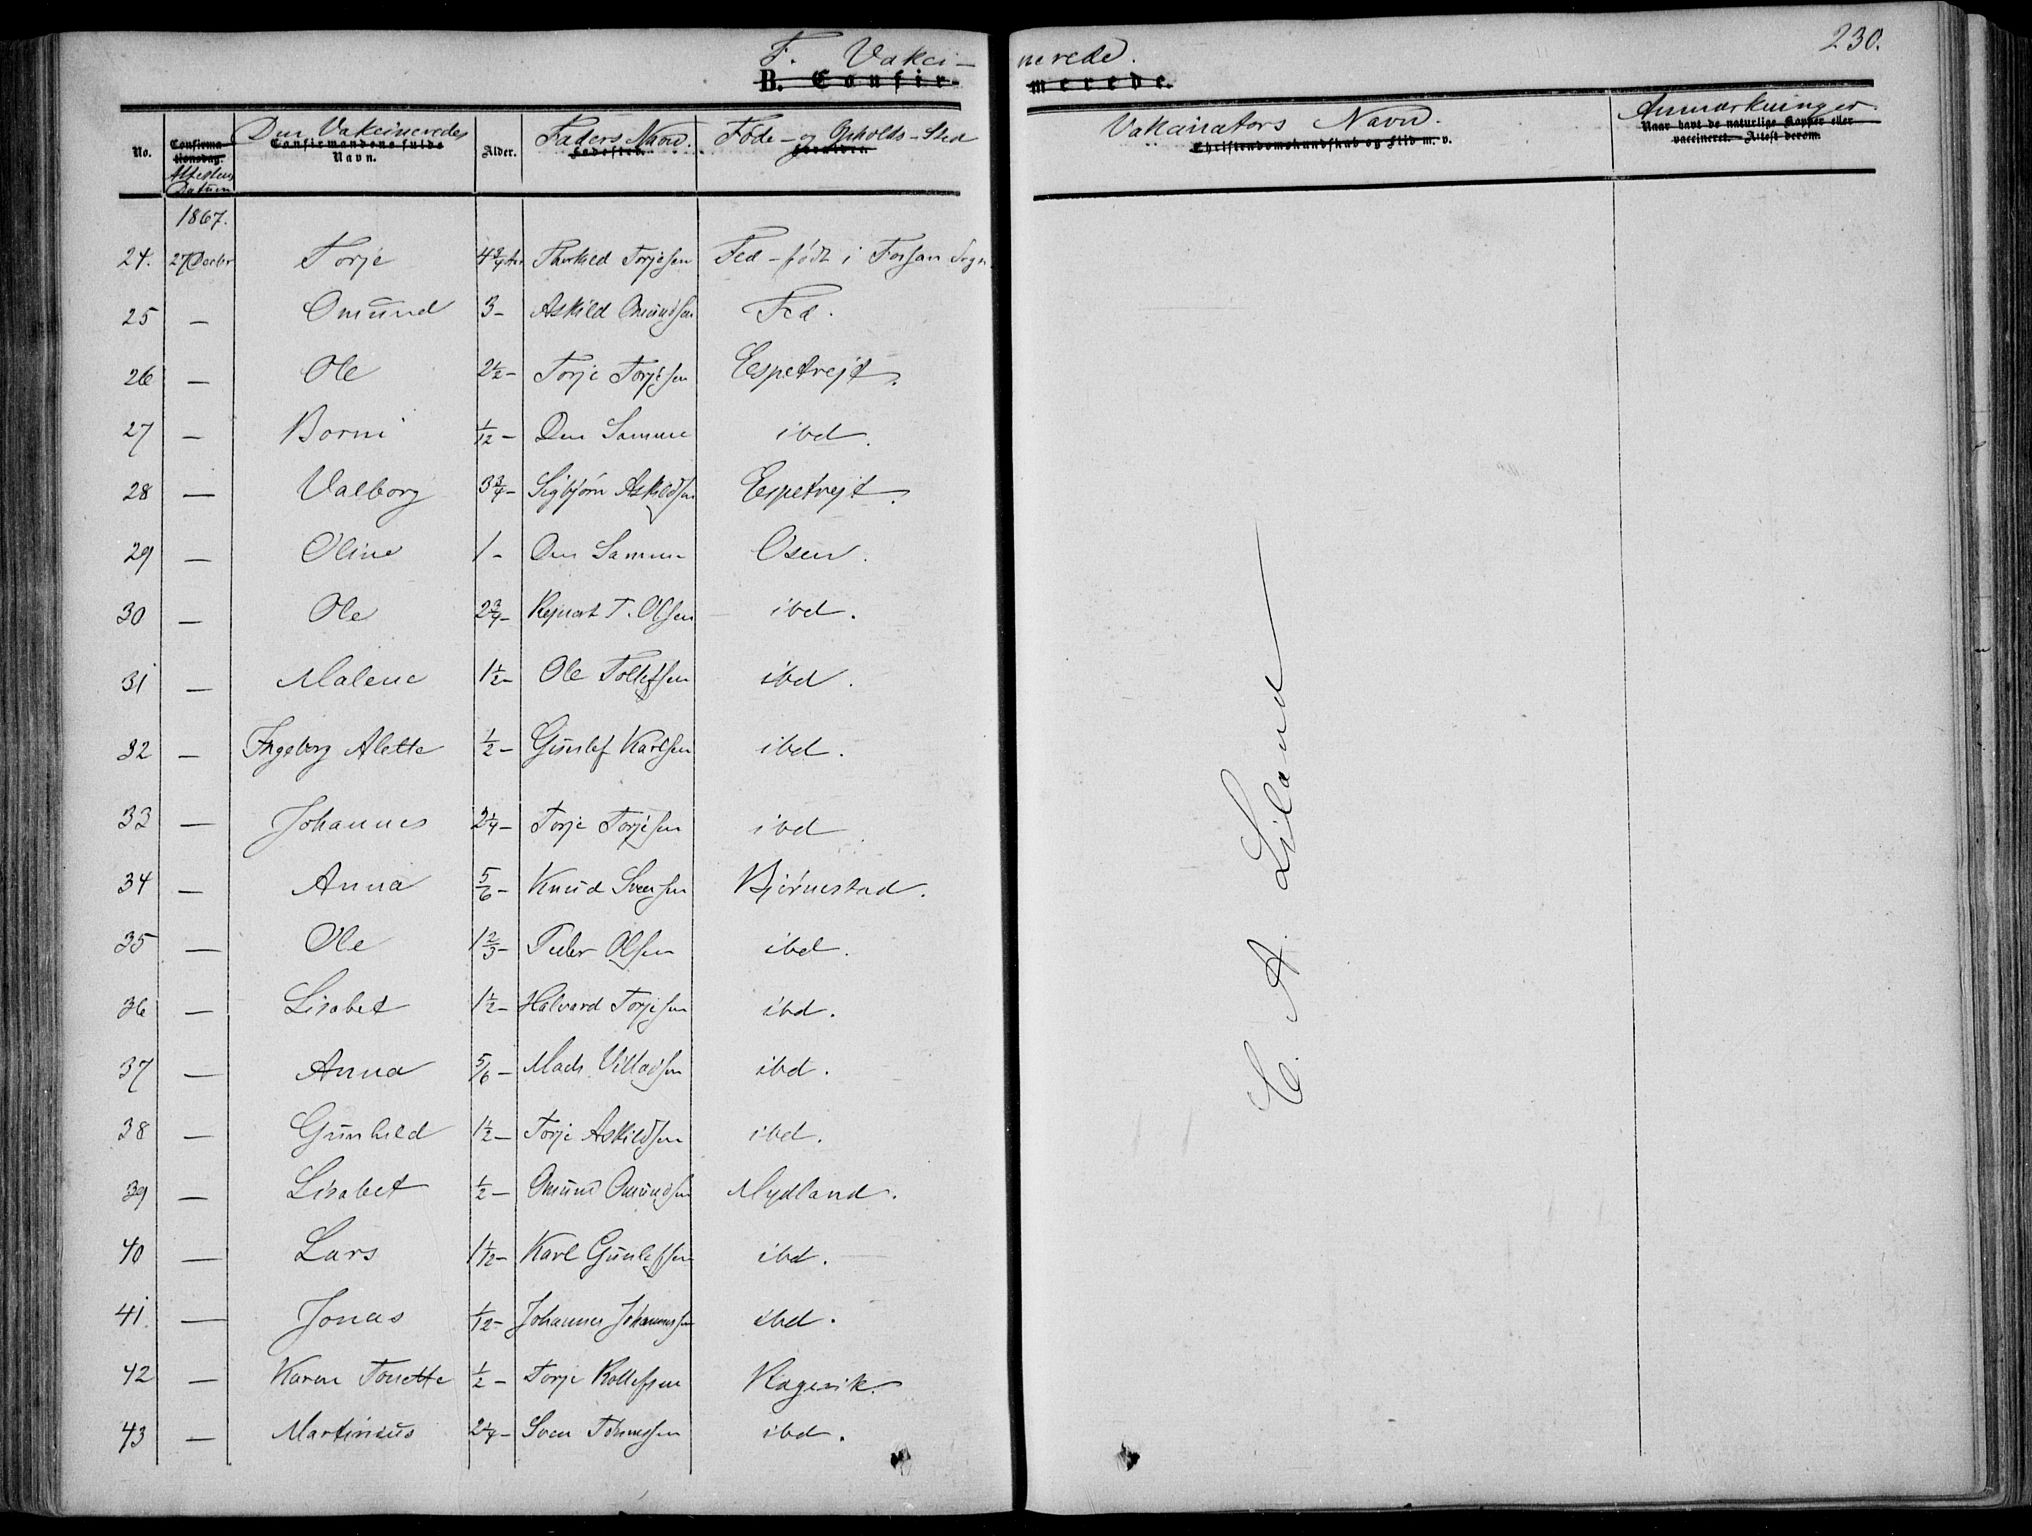 230.
F. Vakci-
nerede.
B. Confir-
merede.
No.
Confirma-
tionsdag.
Attestens
Datum
Den Vakcineredes
Confirmandens fulde
Navn.
Alder.
Faders Navn.
Fødested.
Føde- og Opholds-Sted
Forældre.
Vakcinators Navn.
Christendomskundskab og Flid m. v.
Anmærkninger.
Naar havt de naturlige Kopper eller
vaccineret. Attest derom.
1867.
24. 27 Decbr Torje 4 3/4 Aar Thorkild Torjesen Fed - født i Sogn
25 — Omund 3 - Askild Omundsen Fed.
26 — Ole 2 1/2 - Torje Torjesen Espetvejt.
27 — Borni 1/12 - Den Samme ibd.
28 — Valborg 3 3/4 - Sigbjørn Askildsen Espetvejt.
29 — Oline 1 - Den Samme Osen.
30 — Ole 2 3/4 - T. Olsen ibd.
31 — Malene 1 1/2 - Ole Tollefsen ibd.
32 — Ingeborg Alette 1/2 - Gunlef Karlsen ibd.
33 — Johannes 2 1/4 - Torje Torjesen ibd
34 — Anna 5/6 - Knud Svensen Bjørnestad.
35 — Ole 1 2/3 - Peder Olsen ibd.
36 — Lisabet 1 1/2 - Halvard Torjesen ibd.
37 — Anna 5/6 - Mads Villadsen ibd.
38 — Gunhild 1 1/2 - Torje Askildsen ibd.
39 — Lisabet 1/2 - Omund Omundsen Mydland.
40 — Lars 1 1/12 - Karl Gunlefsen ibd.
41. — Jonas 1/12 - Johannes Johannessen ibd.
42 — Karen Tonette 1/2 - Torje Rollefsen Ragevik.
43 — Martinius 2 1/4 - Sven Tønnessen ibd.
E. A. Liland